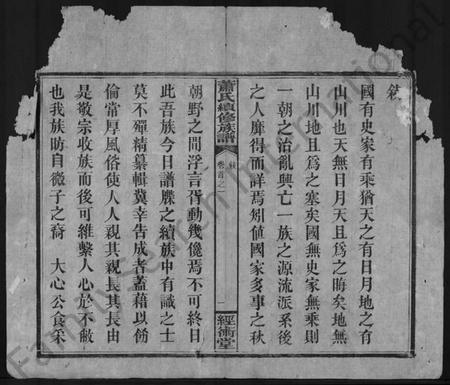 敘
國有史家有乘猶天之有日月地之有
山川也天無日月天且為之晦矣地無
山川地且為之塞矣國無史家無乘則
一朝之治亂興亡一族之源流派系後
之人靡得而詳焉矧值國家多事之秋
蕭氏續修族譜
敘
卷首之一
一
經術堂
朝野之間浮言胥動幾儳焉不可終日
此吾族今日譜牒之續族中有識之士
莫不殫精纂輯冀幸告成者蓋藉以飭
倫常厚風俗使人人親其親長其長由
是敬宗收族而後可維繫人心於不敝
也我族昉自微子之裔 大心公食采
FamilySearch International